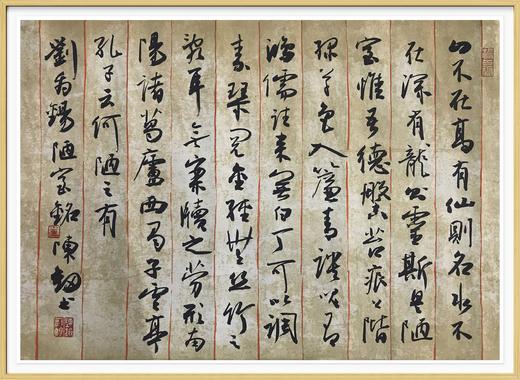 山不在高有仙則名水不
在深有龍則靈斯是陋
室惟吾德馨苔痕上階
綠草色入簾青談笑有
鴻儒往來無白丁可以調
素琴閱金經無絲竹之
亂耳無案牘之勞形南
陽諸葛廬西蜀子雲亭
孔子云何陋之有
劉禹錫陋室銘 陳 書